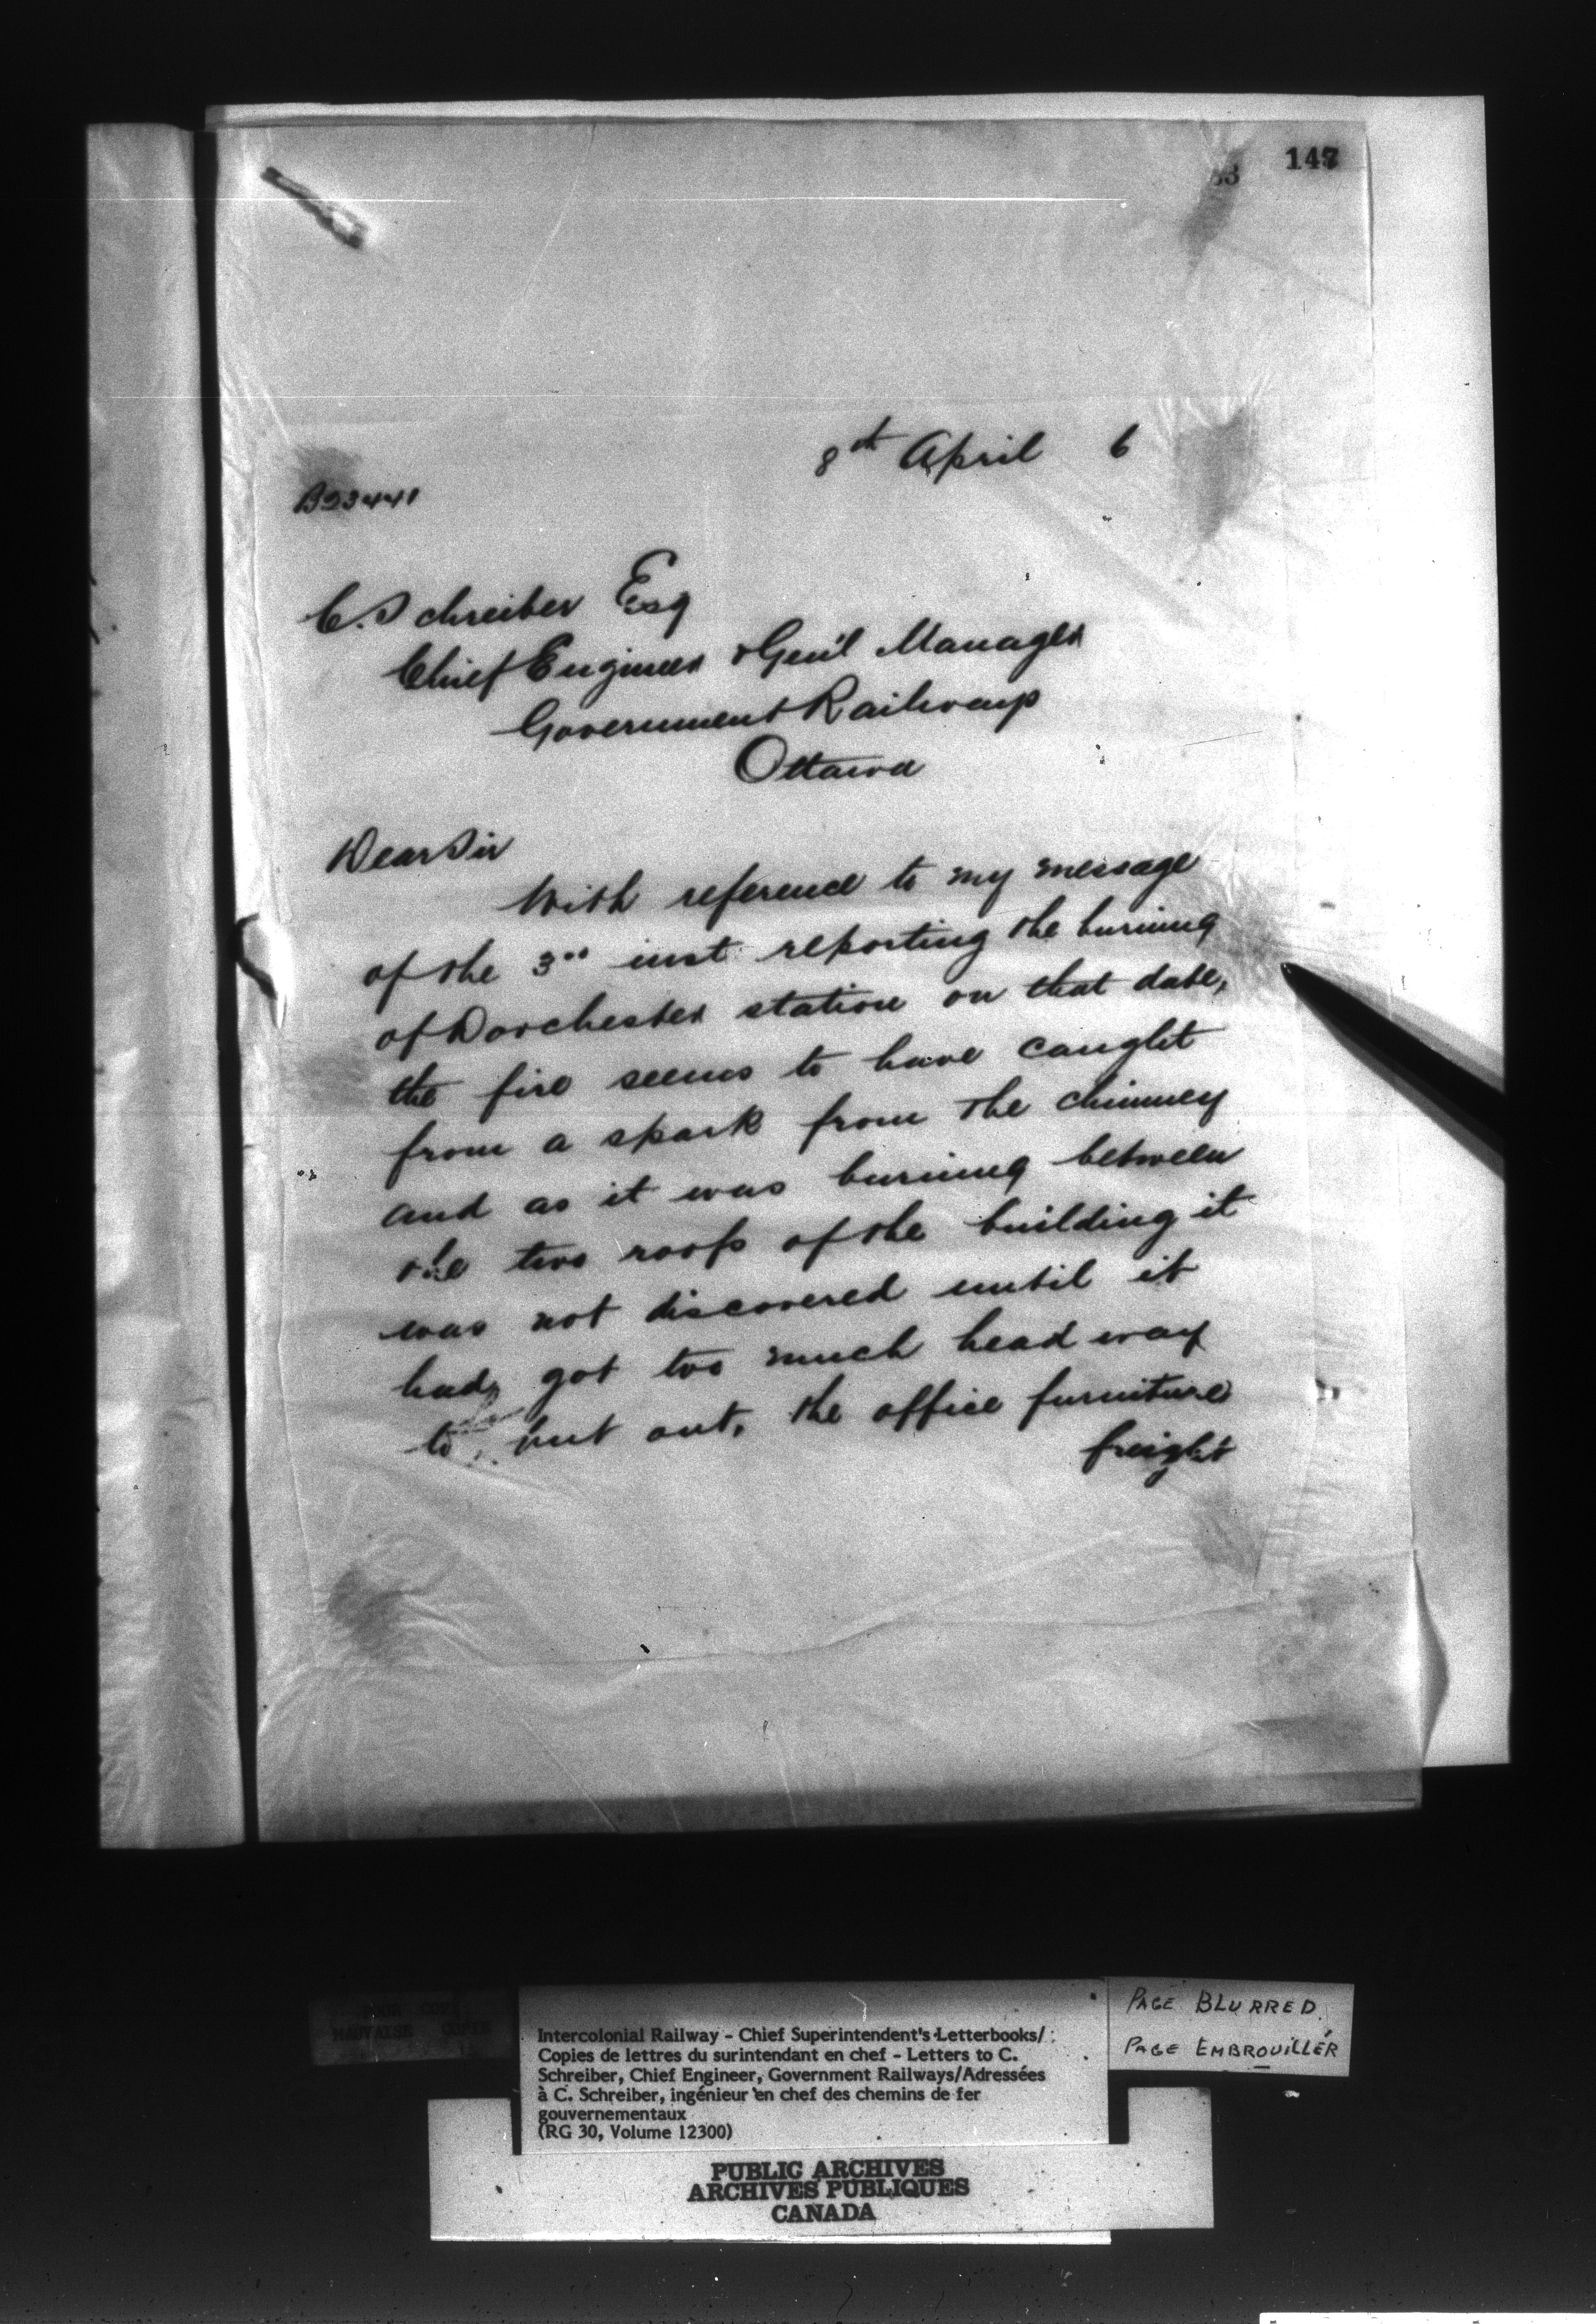 147
8th April 6
B23441
C. Schreiber Esq
Chief Engineer & Gen'l Manager
Government Railways
Ottawa
Dear Sir
With reference to my message
of the 3" inst reporting the burning
of Dorchester station on that date,
the fire seems to have caught
from a spark from the chimney
and as it was burning between
the two roofs of the building it
was not discovered until it
had got too much head way
to put out, the office furniture
freight
PAGE BLURRED
PAGE EMBROUILLÉR
MAUVAISE COPIE
Intercolonial Railway - Chief Superintendent's Letterbooks/
Copies de lettres du surintendant en chef - Letters to C.
Schreiber, Chief Engineer, Government Railways/Adressées
à C. Schreiber, ingénieur en chef des chemins de fer
gouvernementaux
(RG 30, Volume 12300)
PUBLIC ARCHIVES
ARCHIVES PUBLIQUES
CANADA